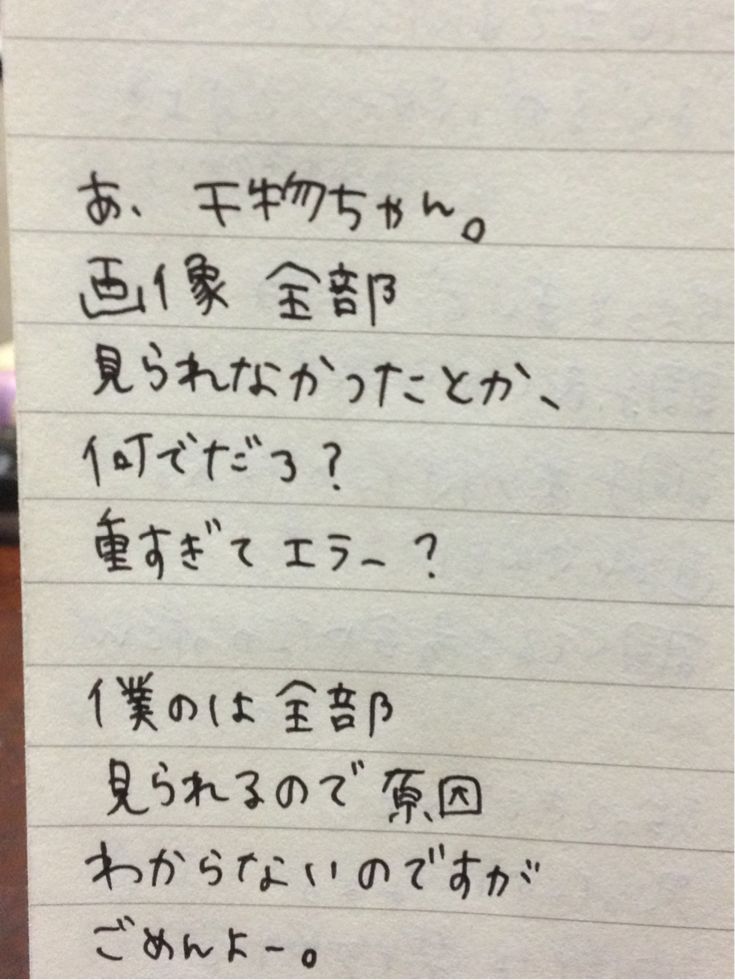 あ、干物ちゃん。
画像 全部
見られなかったことか、
何でだろ?
重すぎてエラー?
僕のは全部
見られるので原因
わからないのですが
ごめんよー。